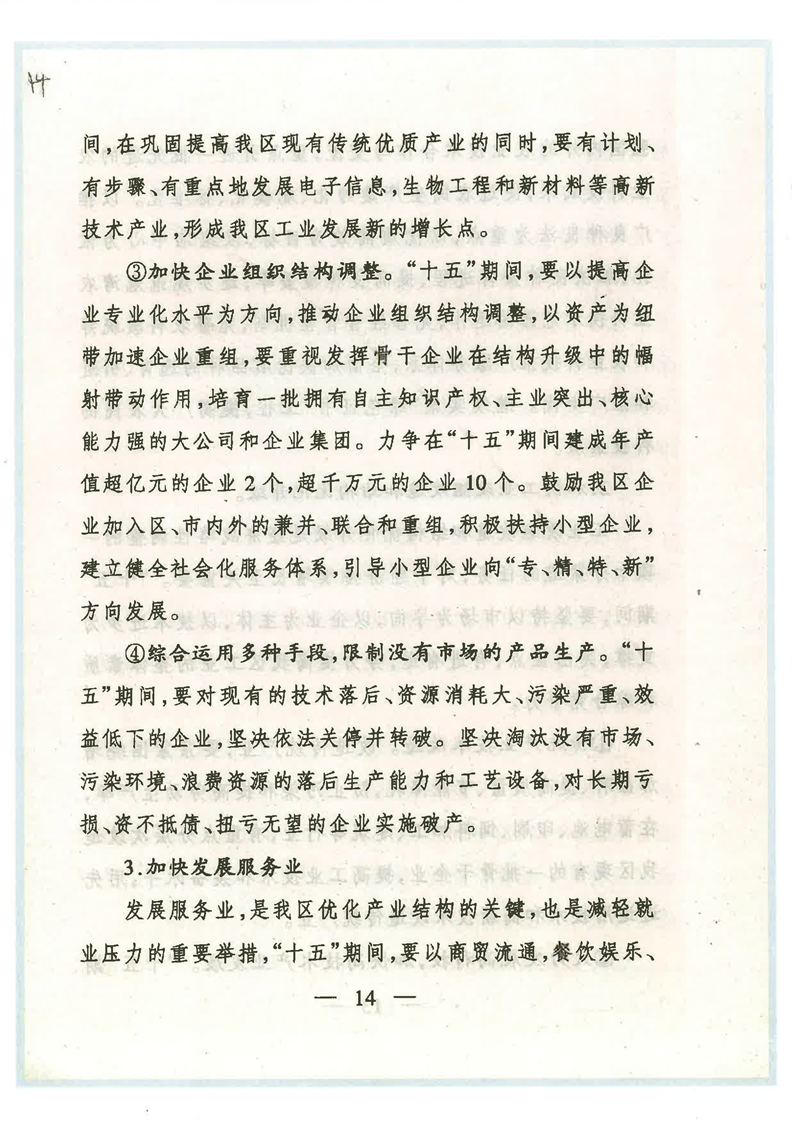 14
间,在巩固提高我区现有传统优质产业的同时,要有计划、
有步骤、有重点地发展电子信息,生物工程和新材料等高新
技术产业,形成我区工业发展新的增长点。
③加快企业组织结构调整。“十五”期间,要以提高企
业专业化水平为方向,推动企业组织结构调整,以资产为纽
带加速企业重组,要重视发挥骨干企业在结构升级中的幅
射带动作用,培育一批拥有自主知识产权、主业突出、核心
能力强的大公司和企业集团。力争在“十五”期间建成年产
值超亿元的企业2个,超千万元的企业10个。鼓励我区企
业加入区、市内外的兼并、联合和重组,积极扶持小型企业,
建立健全社会化服务体系,引导小型企业向“专、精、特、新”
方向发展。
④综合运用多种手段,限制没有市场的产品生产。“十
五”期间,要对现有的技术落后、资源消耗大、污染严重、效
益低下的企业,坚决依法关停并转破。坚决淘汰没有市场、
污染环境、浪费资源的落后生产能力和工艺设备,对长期亏
损、资不抵债、扭亏无望的企业实施破产。
3.加快发展服务业
发展服务业,是我区优化产业结构的关键,也是减轻就
业压力的重要举措,“十五”期间,要以商贸流通,餐饮娱乐、
— 14 —